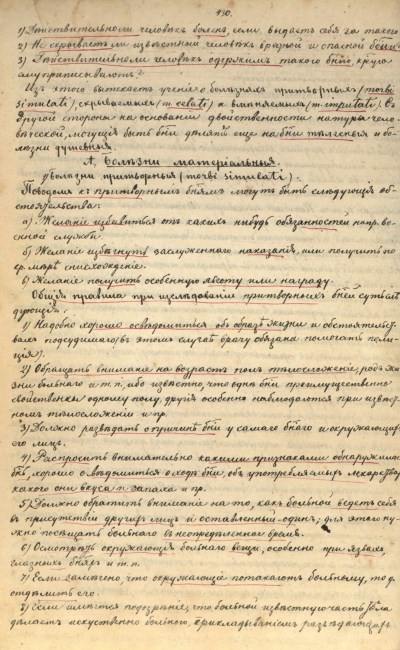 130.
1) Дѣйствительно ли человѣкъ боленъ, если выдаетъ себя за такого
2) Не скрываетъ ли извѣстный человѣкъ вредной и опасной бѣни
3) Дѣйствительно ли человѣкъ одержимъ такою бѣнію, какую
ему приписываютъ?
Изъ этого вытекаетъ ученіе о болѣзняхъ притворныхъ (morbi
simulati), скрываемыхъ (m. celati) и вмѣняемыхъ (m. imputati). Съ
другой стороны на основаніи двойственности натуры чело-
вѣческой, могущія быть бѣни дѣлятъ еще на бѣни тѣлесныя и бо-
лѣзни душевныя.
А, Болѣзни матеріальныя.
Болѣзни притворныя (morbi simulati).
Поводомъ къ притворнымъ бѣнямъ могутъ быть слѣдующія об-
стоятельства:
а) Желаніе избавиться отъ какихъ нибудь обязанностей напр. во-
енной службы.
б) Желаніе избѣгнуть заслуженнаго наказанія, или получить по
кр. мѣрѣ снисхожденіе.
в) Желаніе получить особенную льготу или награду.
Общія правила при изслѣдованіи притворныхъ бѣней суть слѣ-
дующія:
1) Надобно хорошо освѣдомиться объ образѣ жизни и обстоятельст-
вахъ подсудимаго (въ этомъ случаѣ врачу обязана помогать поли-
ція).
2) Обращать вниманіе на возрастъ, полъ, тѣлосложеніе, родъ жи-
зни больнаго и т. п. ибо извѣстно, что одна бѣни преимущественно
свойственны одному полу, другія особенно наблюдаются при извѣст-
номъ тѣлосложеніи и пр.
3) Должно развѣдать о причинѣ бѣни у самаго бѣнаго и окружающих
его лицъ.
4) Распросить внимательно какими признаками обнаружилась
бѣни, хорошо освѣдомиться о ходѣ бѣни, объ употребляемыхъ лекарствахъ
какого они вкуса и запаха и пр.
5) Должно обратить вниманіе на то, какъ больной ведетъ себя
въ присутствіи другихъ лицъ и оставленный одинъ; для этого ну-
жно посѣщать больнаго въ неопредѣленное время.
6) Осмотрѣть окружающія больнаго вещи, особенно при язвахъ,
глазныхъ бѣняхъ и т. п.
7) Если замѣчено, что окружающіе потакаютъ больному, то д.
отдѣлить его.
8) Если имѣется подозрѣніе, что больной извѣстную часть тѣла
дѣлаетъ искуственно больною, прикладываніемъ разъѣдающихъ